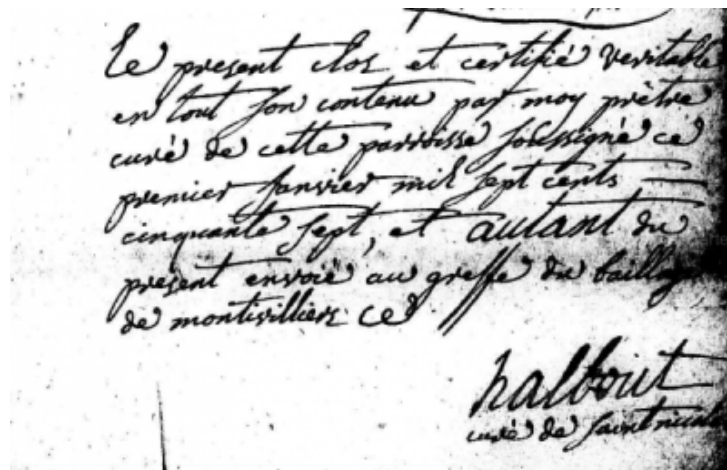 Le present clos et certifié veritable
en tout son contenu par moy prêtre
curé de cette parroisse soussigné ce
premier janvier mil sept cents
cinquante sept, et autant du
present envoié au greffe du baillage
de montivilliers ce
halbout
curé de saint nicolas